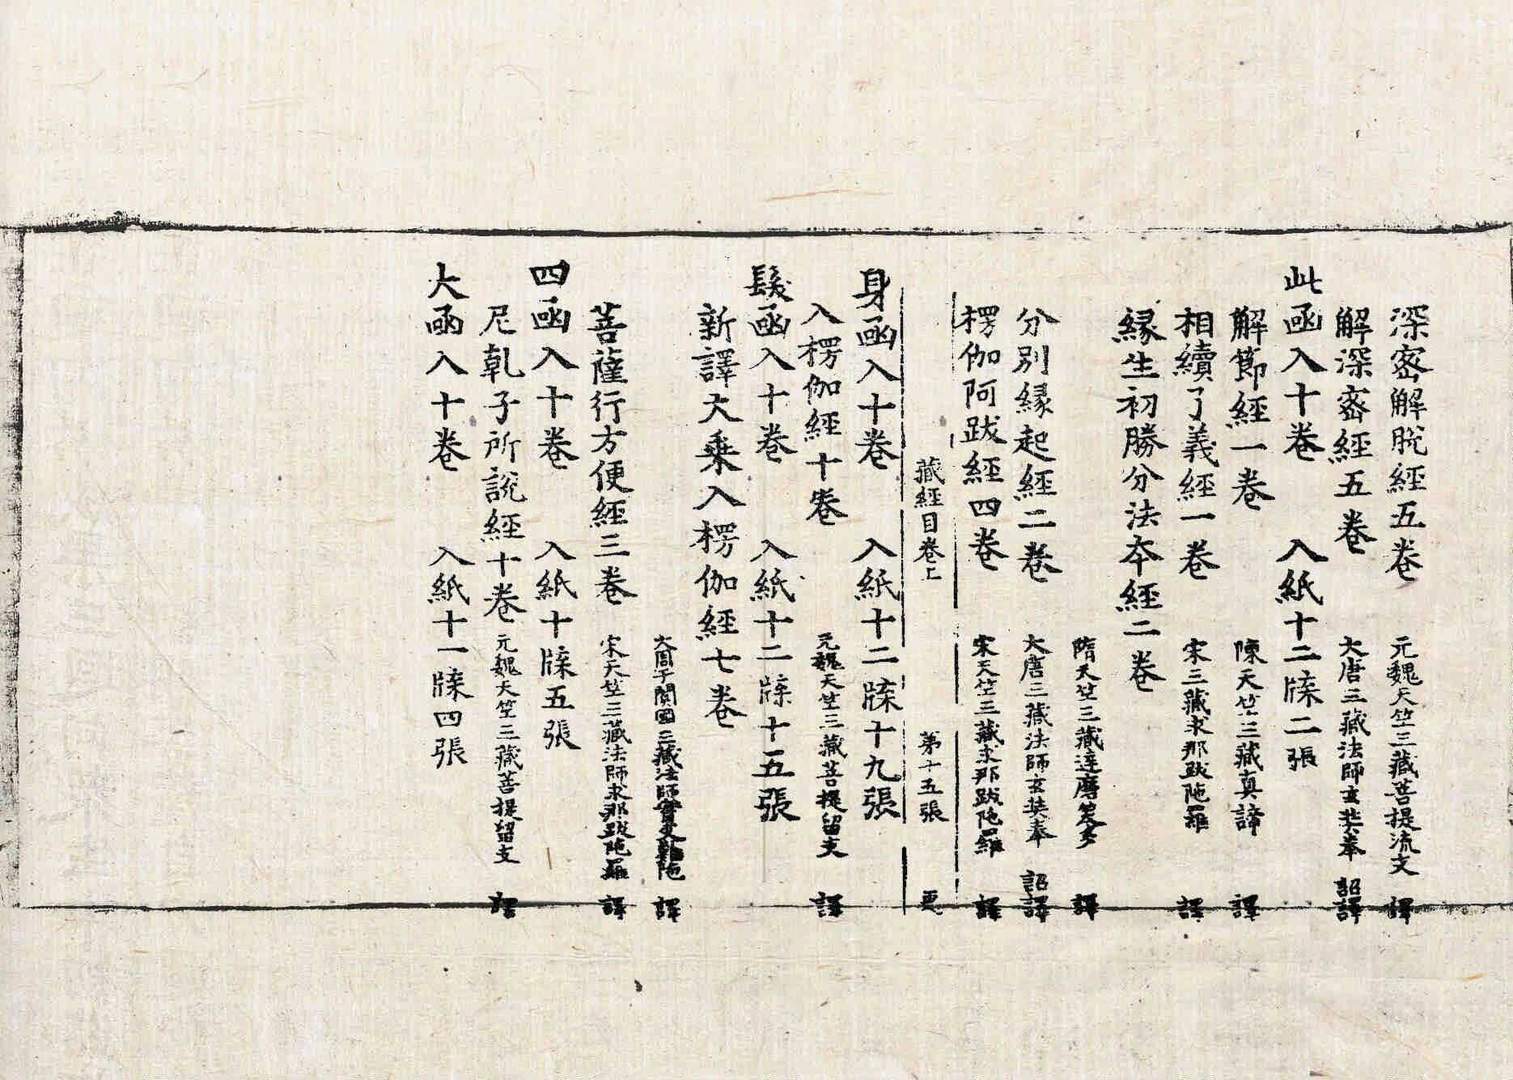 深密解脫經五卷 元魏天竺三藏菩提流支 譯
解深密經五卷 大唐三藏法師玄奘奉 詔譯
此函入十卷 入紙十二牒二張
解節經一卷 陳天竺三藏真諦 譯
相續了義經一卷 宋三藏求那跋陁羅 譯
緣生初勝分法夲經二卷
隋天竺三藏達磨笈多 譯
分別緣起經二卷 大唐三藏法師玄奘奉 詔譯
楞伽阿跋經四卷 宋天竺三藏求那跋陁羅 譯
藏經目卷上 第十五張 更
身函入十卷 入紙十二牒十九張
入楞伽經十卷 元魏天竺三藏菩提留支 譯
髮函入十卷 入紙十二牒十五張
新譯大乘入楞伽經七卷
大周于闐國三藏法師實叉難陁 譯
菩薩行方便經三卷 宋天竺三藏法師求那跋陁羅 譯
四函入十卷 入紙十牒五張
尼乹子所說經十卷 元魏天竺三藏菩提留支 譯
大函入十卷 入紙十一牒四張